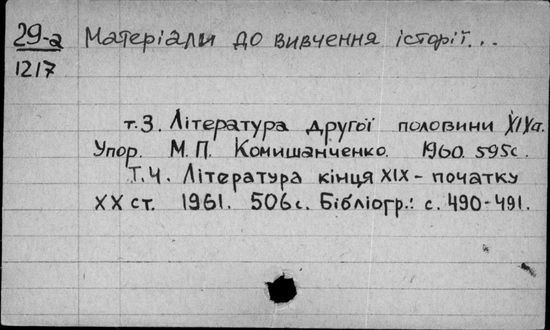 29-а Матеріали до вивчення історії...
1217
т.3. Література другої половини XIXст.
Упор. М.П. Комишанченко. 1960. 595с.
Т.4. Література кінця XIX - початку
XX ст. 1961. 506с. Бібліогр.: с. 490-491.